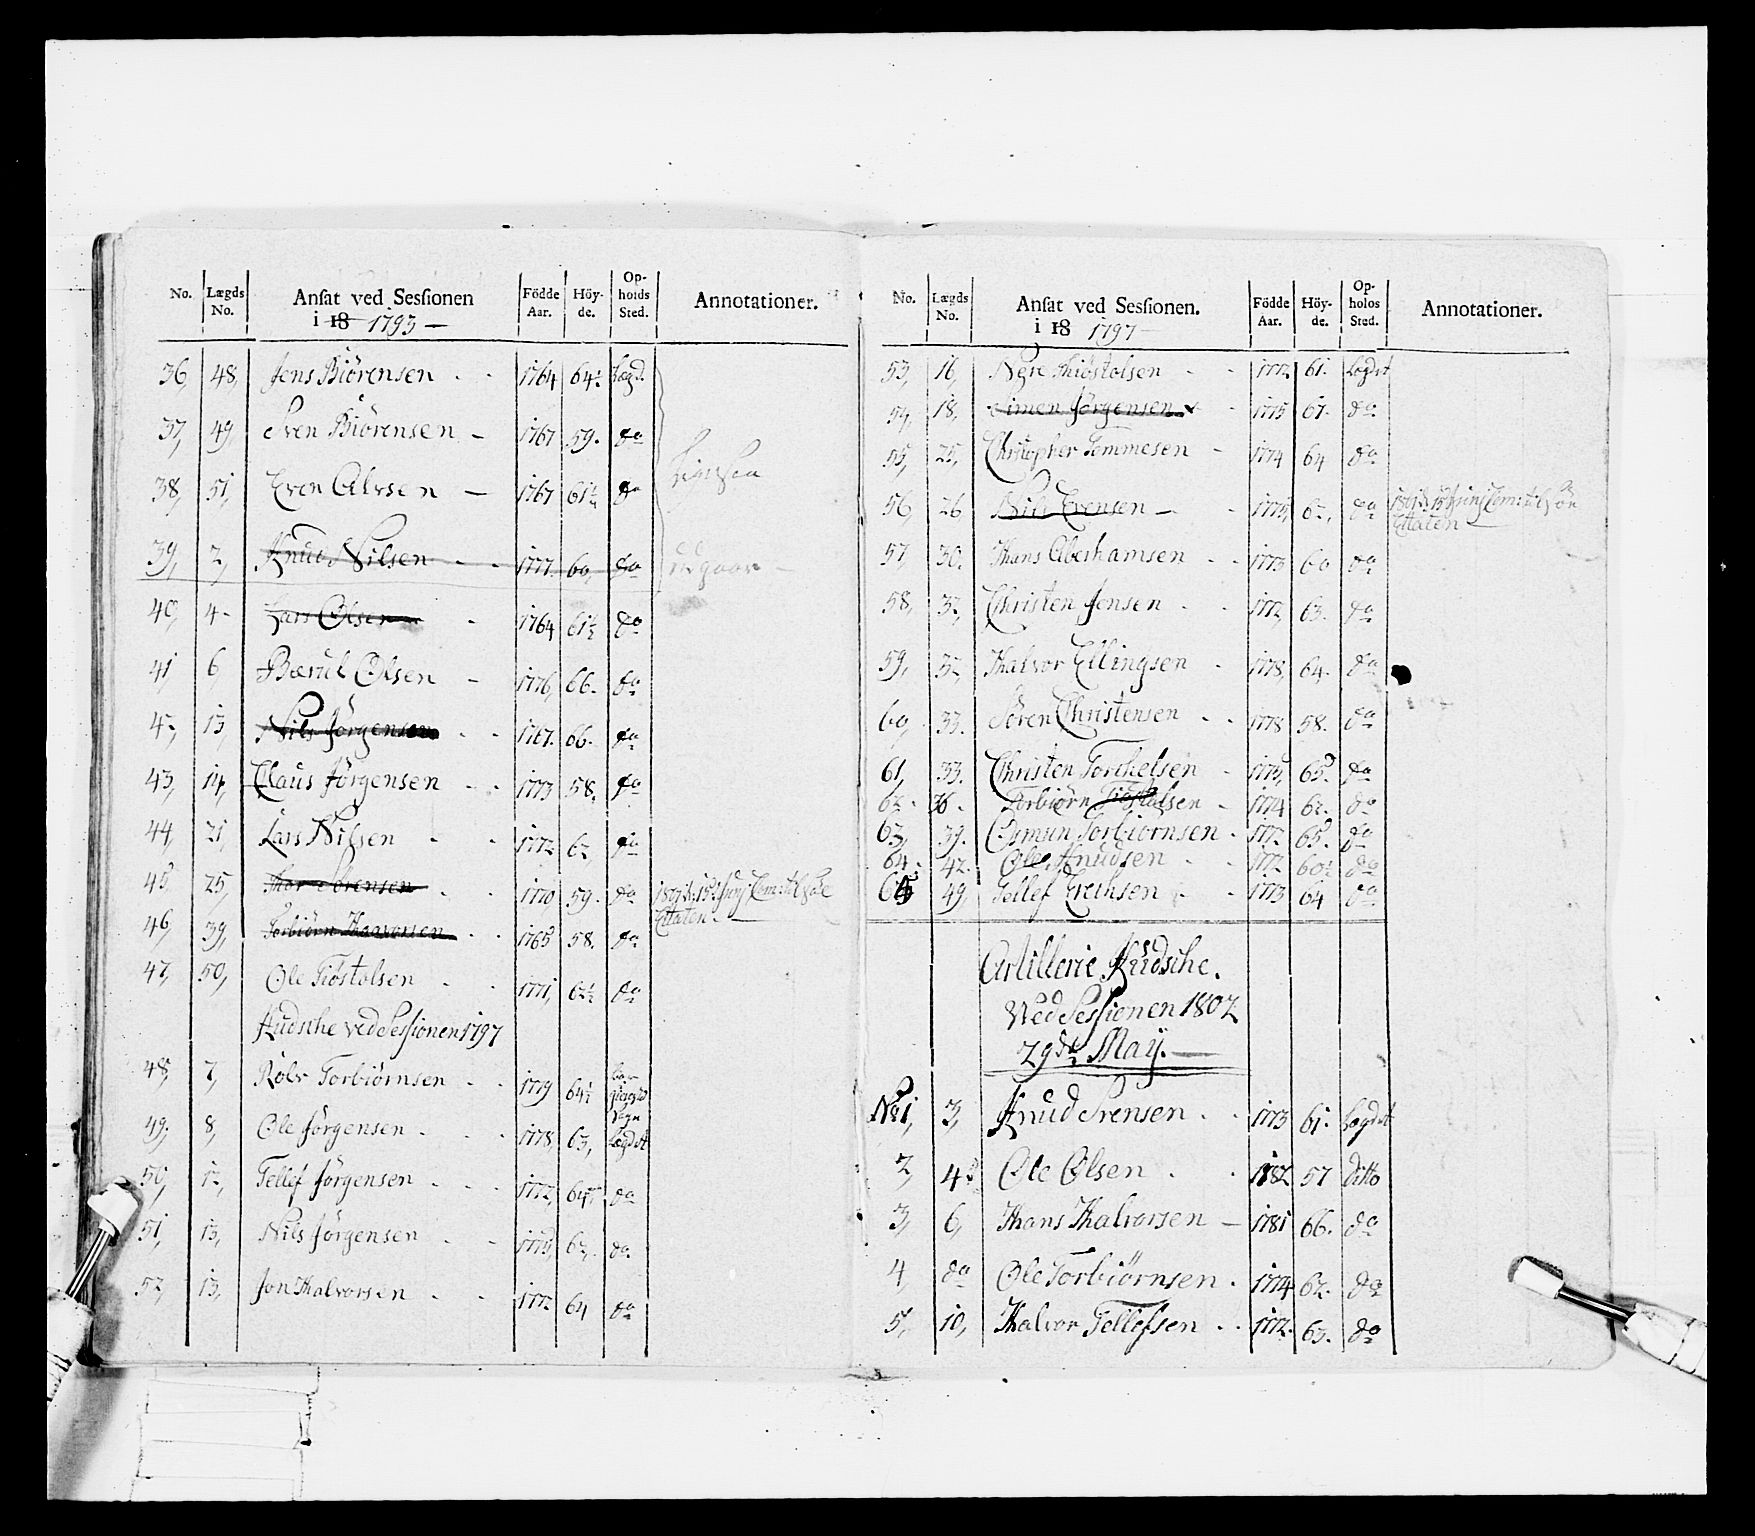 No. Lægds No. Ansat ved Sessionen i 18 1793 — Födde Aar. Höyde. Opholds Sted. Annotationer.
36, 48, Jens Biörensen - - 1764 64½ Lægd.
37, 49, Sven Biörensen — 1767 59. do
38, 51, Even Alvsen — 1767 61½ do
39, 2, Knud Nilsen - - 1777. 60, do udgaar —
40, 4- Lars Olsen - 1764 61½ do
41, 6, Bærul Olsen - 1776, 66. do
42, 13, Nils Jörgensen - - 1767. 66. do
43, 14, Claus Jörgensen - - 1773 58. do
44, 21, Lars Nilsen - - 1772 62, do
45, 25, Thor Sörensen - - 1770, 59. do
Etaten. —
46, 39, Torbiörn Halvorsen - - 1765 58. do
47, 50, Ole Tiöstolsen - - 1771, 62½ do
Kudske ved Sessionen 1797
48, 7, Rolv Torbiörnsen - - 1779 64½
49, 8, Ole Jörgensen - - - 1778, 63, Lægdet
50, 12, Tellef Jörgensen - - - 1772, 64½ do
51, 13, Nils Jörgensen - - 1775, 62, do
52, 13, Jon Halvorsen - - 1772 64 do
No. Lægds No. Ansat ved Sessionen. i 18 1797 Födde Aar. Höyde. Opholds Sted. Annotationer.
53, 16, Thiöstolsen - - 1772 61. Lægdet
54, 18, Simen Jörgensen - 1775 67. do
55, 25, Christopher Tommesen - 1774 64 do
56, 26 Nils Evensen — 1775, 62, do
Etaten —
57, 30. Hans Aberhamsen - - 1773 60 do
58, 32, Christen Jensen - - 1772, 63. do
59, 32, Halvor Ellingsen - 1778, 64. do
60, 33. Sören Christensen - - 1778 58. do
61, 33. Christen Torchelsen - 1775, 65. do
62. 36. Torbiörn Tiöstolsen - 1774 62. do
63, 39. Osmun Torbiörnsen - 1772 65. do
64. 42. Ole Knudsen - - 1772 60½ do
65 49, Tellef Erichsen - - 1773 64 do
Artillerie Kudske.
Ved Sessionen 1802
29de May. —
No 1, 3, Knud Svensen - - 1773 61. Lægdet
2, 4 Ole Olsen - - 1782 57 ditto
3, 6, Hans Halvorsen — 1781 66. do
4, do Ole Torbiörnsen - 1774 62. do
5, 10, Halvor Tellefsen - - 1772. 63. do